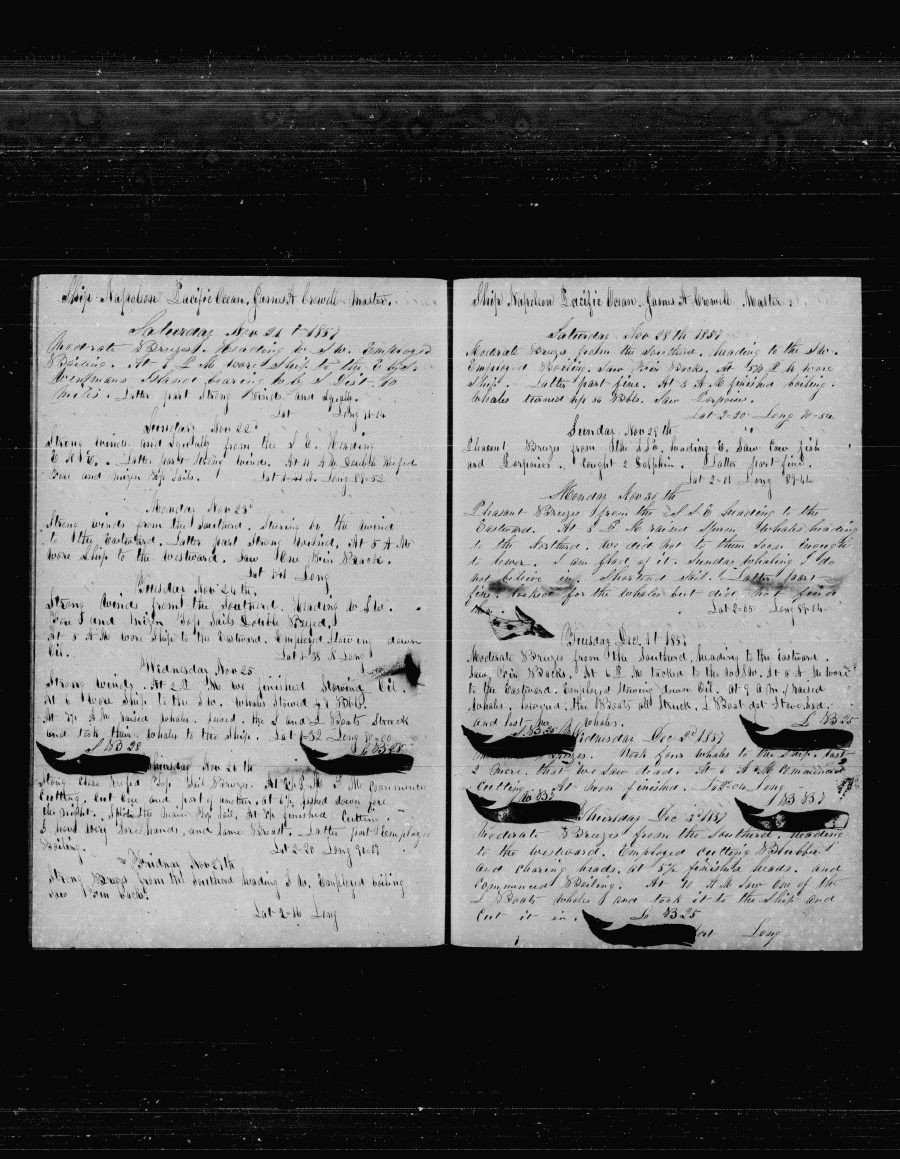 Ship Napoleon Pacific Ocean, James A Crowell Master.
Saturday Nov 21st 1857
Moderate Breezes. Heading to S.W. Employed
Boiling. At 6 P.M. wore Ship to the E by S.
Island bearing by S Dist 40
miles. Latter part Strong Winds and Squally.
Lat Long
Sunday Nov 22d
Strong winds and Squally from the S E. Heading
E N E. Latter part Strong winds. At 4 A M Double Reefed
Fore and Mizen Top Sails. Long 89-52
Monday Nov 23d
Strong winds from the Southerd. Stering by the wind
to the Eastward. Latter part Strong Winds. At 5 A M
Wore Ship to the Westward. Saw One Fin Back.
Lat Long
Tuesday Nov 24th
Strong Winds from the Southerd Heading W S W.
Fore T and Mizen Top Sails Double Reefed.
At 5 A M wore Ship to the Eastward. Employed Stowing down
Oil. Lat 1-38 Long
Wednesday Nov 25
Strong winds. At 2 P M we finished Stowing Oil.
At 6 Wore Ship to the S.W. Whales Stowed Bbls.
At A M raised whales. lowerd. the S and L Boats Struck
and took them. whales to the Ship. Lat 1-52 Long 90-00
S B 28
L B 28
Thursday Nov 26th
Stong Close Reefed Top Sail Breezes. At P M Commence
Cutting. cut One and part of another, at 6½ fished down for
the night. Main Top Sail. At finished Cutting.
I have Very Sore hands, and Lame Breast. Latter part Employed
Boiling. Lat 2-20 Long 90-19
Friday Nov 27th
Strong Breezes from the Southerd heading S W. Employed boiling
saw Fin back.
Lat 2-16 Long
Ship Napoleon Pacific Ocean. James A. Crowell Master
Saturday Nov 28th 1857
Moderate Breezes from the Southerd, heading to the S.W.
Employed Boiling. Saw Fin Backs. At 5½ P M wore
Ship. Latter part fine. At 3 A M finished boiling.
Whales turned up 56 Bbls. Saw Porpoises.
Lat 2-20 Long 90-50
Sunday Nov 29th
Pleasant Breezes from the S S E, heading E. Saw Cow fish
and Porpoises. Caught 2 Dolphin. Latter part fine.
Lat 2-01 Long 89-44
Monday Nov 30th
Pleasant Breezes from the S S E heading to the
Eastward. At 3 P M raised Sperm Whales heading
to the Northerd. We did not to them Soon Enough
to lower. I am glad of it. Sunday Whaling I do
not believe in. Shortend Sail. Latter part
fine. looked for the whales but did not find
them. Lat 2-05 Long 89-14
Tuesday Dec 1st 1857
Moderate Breezes from the Southerd, heading to the Eastward.
Saw Fin Backs. At 6 P M tacked to the W S W. At 5 A M wore
to the Eastward. Employed Stowing down Oil. at 9 A M, Raised
Whales, lowered, the Boats all Struck, L Boat got Stove bad
and lost her whales.
S B 25
L B 25
Wednesday Dec 2d 1857
Breezes. Took four Whales to the Ship. lost
2 more, that we Saw dead. At 6 A M Commenced
Cutting. At Noon finished. Lat 2-04 Long
W B 35
S B 35
Thursday Dec 3d 1857
Moderate Breezes from the Southerd. Heading
to the westward. Employed cutting Blubber
and clearing heads, at 5½ finished heads. and
Commenced Boiling. At 10 A M Saw One of the
L Boats whales and took it to the Ship and
Cut it in. L B 25
Lat Long